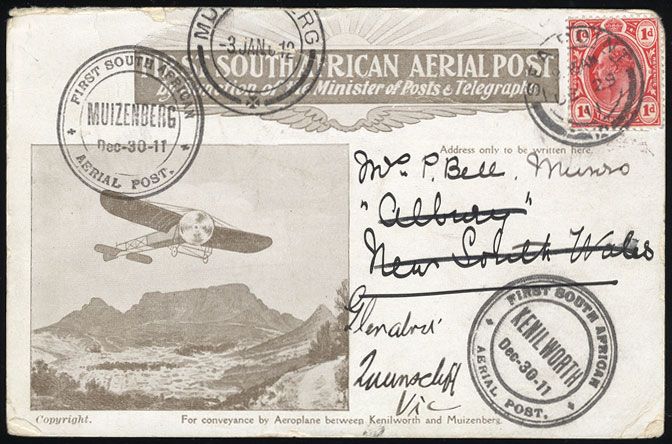 MUIZENBERG
3 JAN 12
1ST SOUTH AFRICAN AERIAL POST
By Sanction of the Minister of Posts & Telegraphs
1d 1d
1d 1d
FIRST SOUTH AFRICAN
MUIZENBERG
Dec-30-11
AERIAL POST.
Address only to be written here.
Mrs P. Bell. Munro
"Albury"
New South Wales
Glendower
Queenscliff
Vic
FIRST SOUTH AFRICAN
KENILWORTH
Dec-30-11
AERIAL POST.
Copyright.
For conveyance by Aeroplane between Kenilworth and Muizenberg.